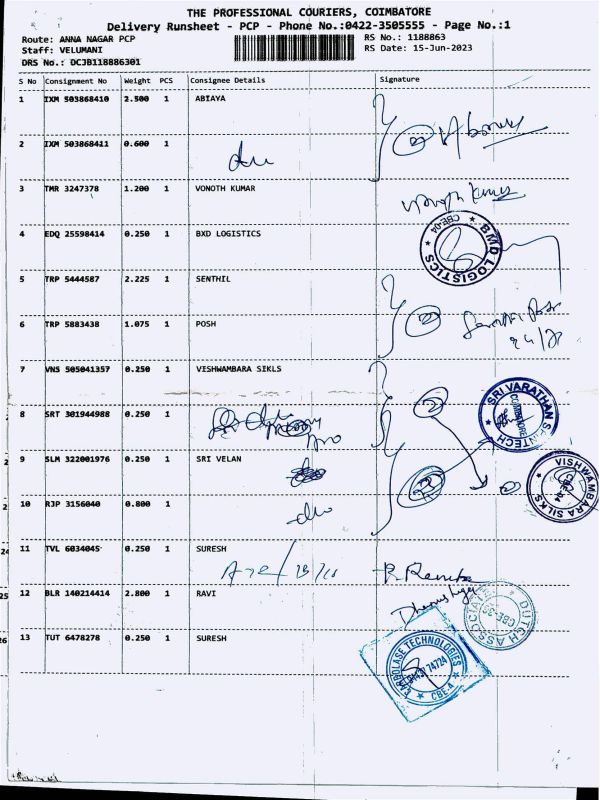 THE PROFESSIONAL COURIERS, COIMBATORE
Delivery Runsheet - PCP - Phone No.:0422-3505555 - Page No.:1
Route: ANNA NAGAR PCP
RS No.: 1188863
Staff: VELUMANI
RS Date: 15-Jun-2023
DRS No.: DCJB118886301
S No Consignment No Weight PCS Consignee Details Signature
1 IXM 503868410 2.500 1 ABIAYA
2 IXM 503868411 0.600 1
3 TMR 3247378 1.200 1 VONOTH KUMAR
4 EDQ 25598414 0.250 1 BXD LOGISTICS
BMD LOGISTICS
CBE-04
5 TRP 5444587 2.225 1 SENTHIL
6 TRP 5883438 1.075 1 POSH
2
7 VNS 505041357 0.250 1 VISHWAMBARA SIKLS
2
8 SRT 301944988 0.250 1
COIMBATORE
2 9 SLM 322001976 0.250 1 SRI VELAN
VISHWAMBARA SILKS
CBE-04
2
2 10 RJP 3156040 0.800 1
24 11 TVL 6034045 0.250 1 SURESH
25 12 BLR 140214414 2.800 1 RAVI
DUTCH ASSOCIATES
26 13 TUT 6478278 0.250 1 SURESH